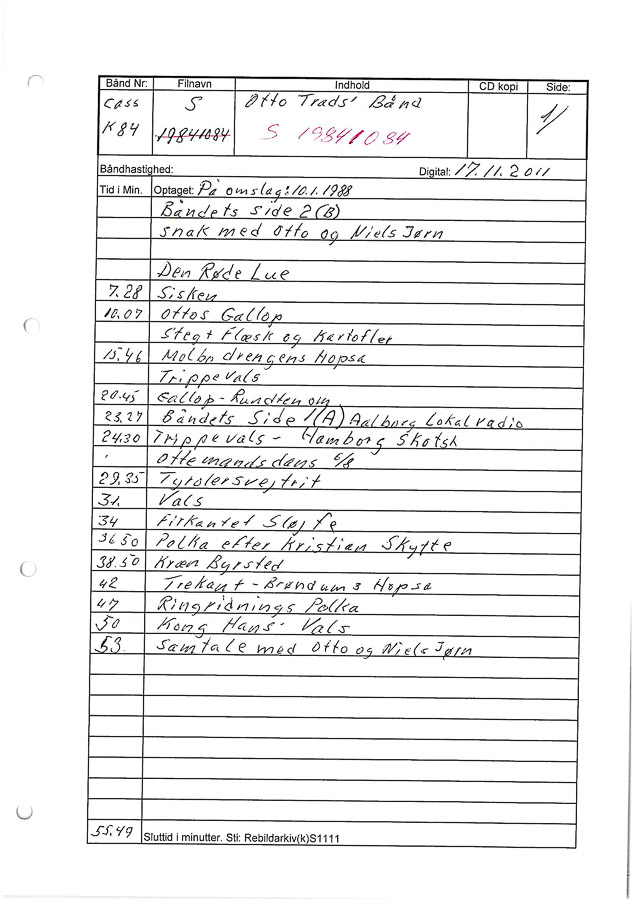 Bånd Nr: Filnavn Indhold CD kopi Side:
Cass S Otto Trads' Bånd 1/
K84 19841084 S 19841084
Båndhastighed: Digital: 17.11.2011
Tid i Min. Optaget: På omslag: 10.1.1988
Båndets side 2 (B)
snak med Otto og Niels Jørn
Den Røde Lue
7.28 Sisken
10.07 Ottos Gallop
Stegt Flæsk og Kartofler
15.46 Molbo drengens Hopsa
Trippevals
20.45 Gallop - Rundtenom
23.27 Båndets Side 1 (A) Aalborg Lokalradio
24.30 Trippevals - Hamborg Skotsk
Ottemandsdans 6/8
29.35 Tyrolersvejtrit
31. Vals
34 Firkantet Sløjfe
36.50 Polka efter Kristian Skytte
38.50 Kræn Byrsted
42 Trekant - Brøndums Hopsa
47 Ringridnings Polka
50 Kong Hans- Vals
53. Samtale med Otto og Niels Jørn
55.49 Sluttid i minutter. Sti: Rebildarkiv(k)S1111